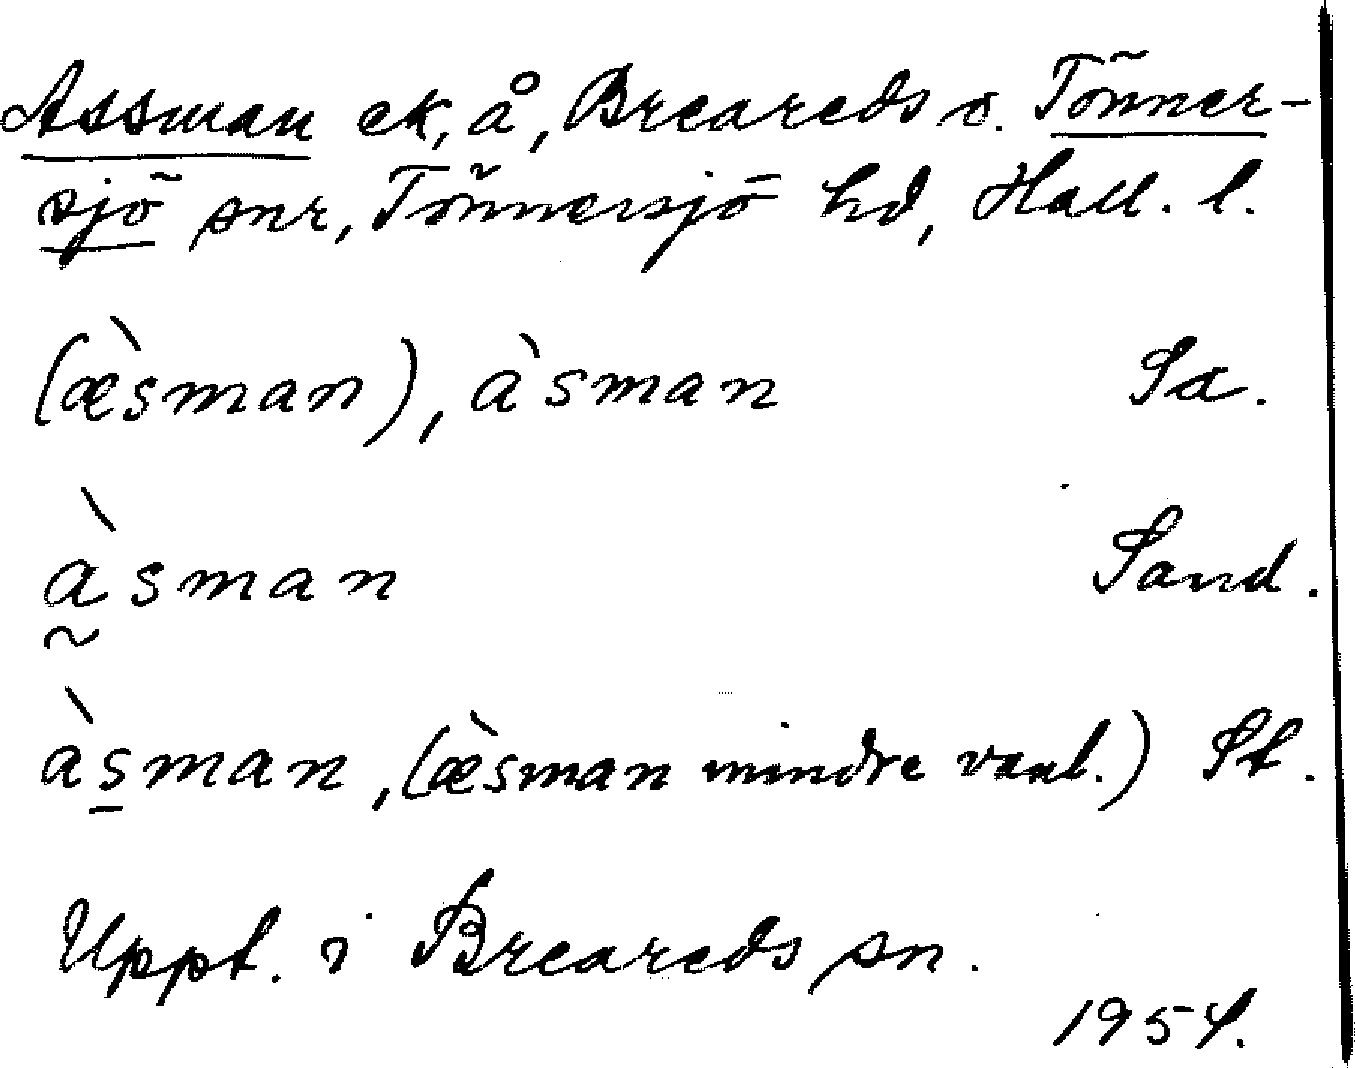 Assman ek, å, Breareds o. Tönner-
sjö snr, Tönnersjö hd, Hall. l.
(æ̀sman), àsman Sa.
à̰sman Sand.
às̱man, (æ̀sman mindre vanl.) St.
Uppt. i Breareds sn.
1954.